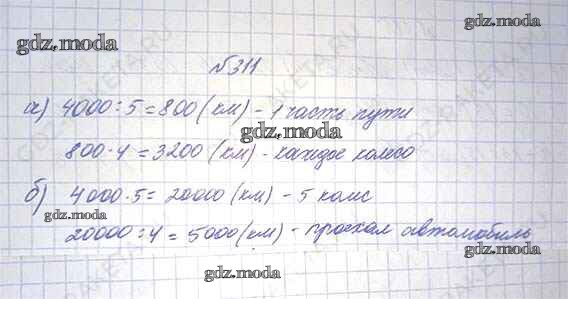 gdz.moda
gdz.moda
№311
а) 4000:5=800(км) - 1 часть пути
gdz.moda
800·4=3200 (км) - каждое колесо
б) 4000·5= 20000 (км) - 5 колес
gdz.moda
20000:4=5000(км) - проехал автомобиль
gdz.moda
gdz.moda